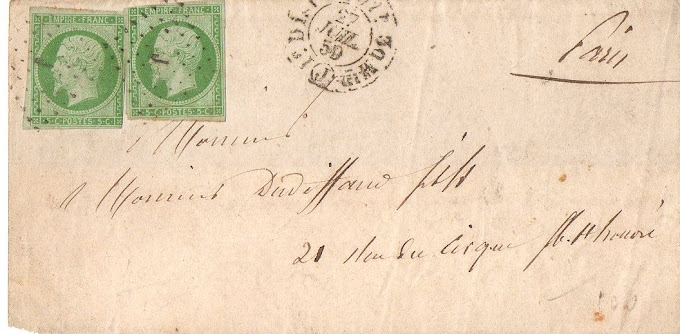 EMPIRE FRANC
EMPIRE FRANC
5·C·POSTES·5·C
5·C·POSTES·5·C
27
JUIL
59
Paris
Monsieur
Monsieur Dudeffand fils
21 Rue du Cirque fb. St honoré